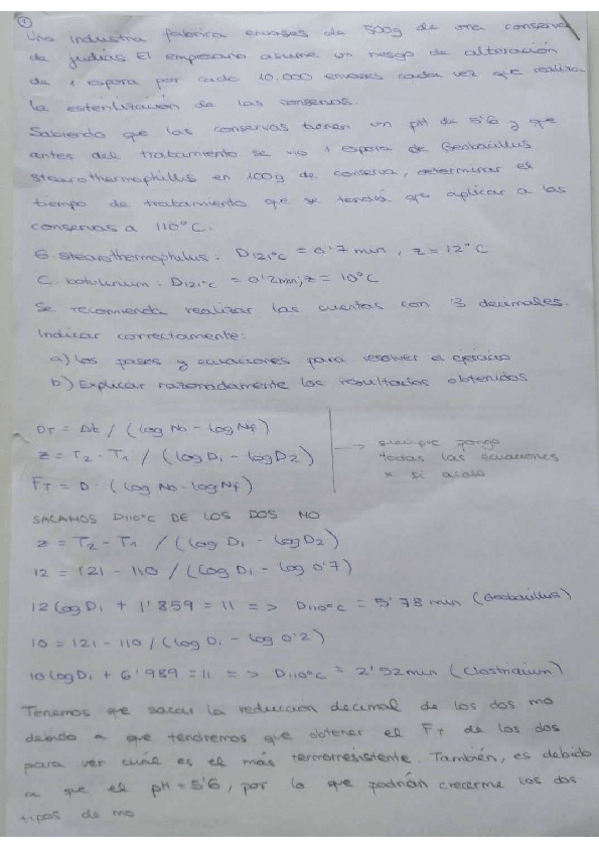 ①
Una industria fabrica envases de 500g de una conserva
de judías El empresario asume un riesgo de alteración
de 1 espora por cada 10.000 envases cada vez que realiza
la esterilización de las conservas.
Sabiendo que las conservas tienen un pH de 5'6 y que
antes del tratamiento se vio 1 espora de Geobacillus
stearothermophillus en 100g de conserva, determinar el
tiempo de tratamiento que se tendrá que aplicar a las
conservas a 110°C.
G. stearothermophilus: D121°C = 0'7 min, z = 12°C
C. botulinum: D121°C = 0'2min; z = 10°C
Se recomienda realizar las cuentas con 3 decimales.
Indicar correctamente:
a) Los pasos y ecuaciones para resolver el ejercicio
b) Explicar razonadamente los resultados obtenidos
DT = Δt / (log No - log Nf)
z = T2 - T1 / (log D1 - log D2)
FT = D · (log No - log Nf)
→ siempre pongo
todas las ecuaciones
x si acaso
SACAMOS D110°C DE LOS DOS MO
z = T2 - T1 / (log D1 - log D2)
12 = 121 - 110 / (log D1 - log 0'7)
12 log D1 + 1'859 = 11 => D110°C = 5'78 min (Geobacillus)
10 = 121 - 110 / (log D1 - log 0'2)
10 log D1 + 6'989 = 11 => D110°C = 2'52min (Clostridium)
Tenemos que sacar la reducción decimal de los dos mo
debido a que tendremos que obtener el FT de los dos
para ver cuál es el más termorresistente. También, es debido
a que el pH = 5'6, por lo que podrán crecerme los dos
tipos de mo